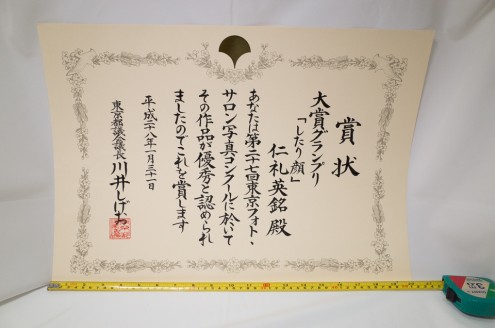 賞状
大賞グランプリ
「したり顔」
仁礼英銘殿
あなたは第二十七回東京フォト・
サロン写真コンクールに於いて
その作品が優秀と認められ
ましたのでこれを賞します
平成二十八年一月三十一日
東京都議会議長 川井しげお